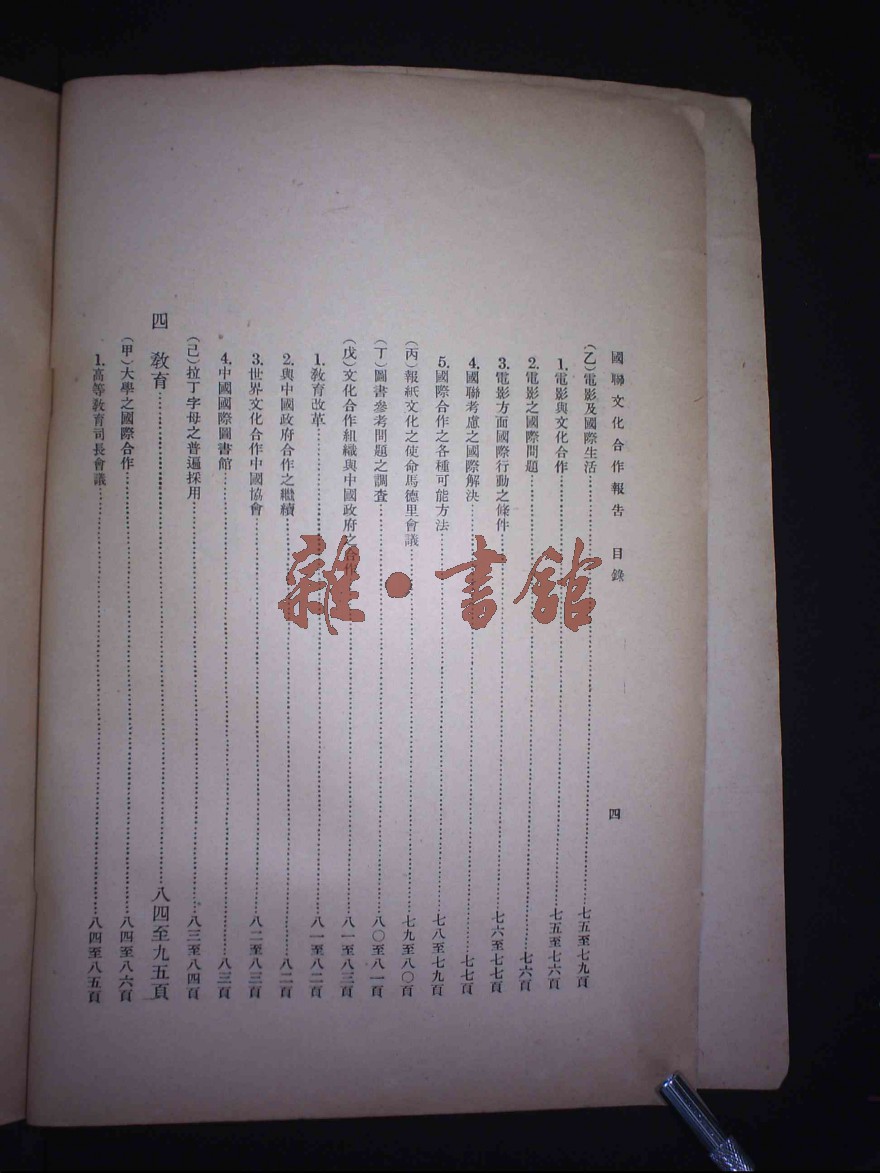 國聯文化合作報告 目錄 四
(乙)電影及國際生活……七五至七九頁
1.電影與文化合作……七五至七六頁
2.電影之國際問題……七六頁
3.電影方面國際行動之條件……七六至七七頁
4.國聯考慮之國際解決……七七頁
5.國際合作之各種可能方法……七八至七九頁
(丙)報紙文化之使命馬德里會議……七九至八〇頁
(丁)圖書參考問題之調查……八〇至八一頁
(戊)文化合作組織與中國政府之合作……八一至八三頁
1.教育改革……八一至八二頁
2.與中國政府合作之繼續……八二頁
3.世界文化合作中國協會……八二至八三頁
4.中國國際圖書館……八三頁
(己)拉丁字母之普遍採用……八三至八四頁
四 教育……八四至九五頁
(甲)大學之國際合作……八四至八六頁
1.高等教育司長會議……八四至八五頁
雜·書館